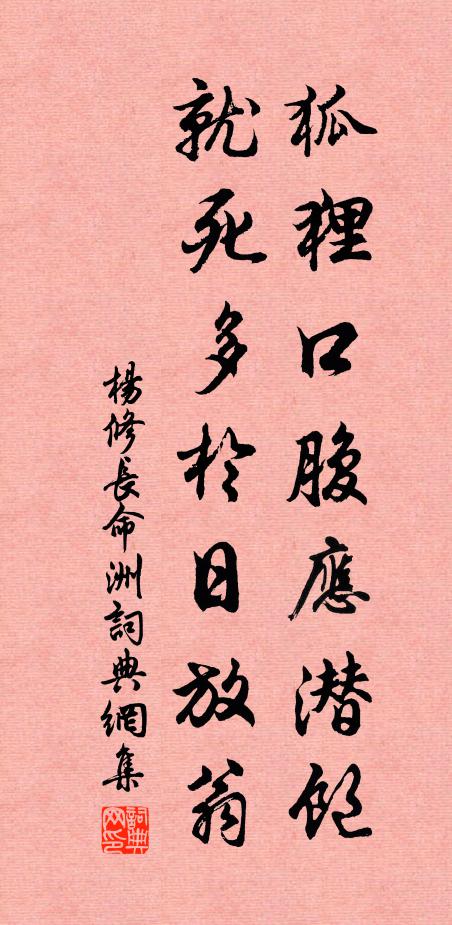 狐狸口腹應潜飽
就死多於日放翁
楊修長命洲詞典網集
詞典网印